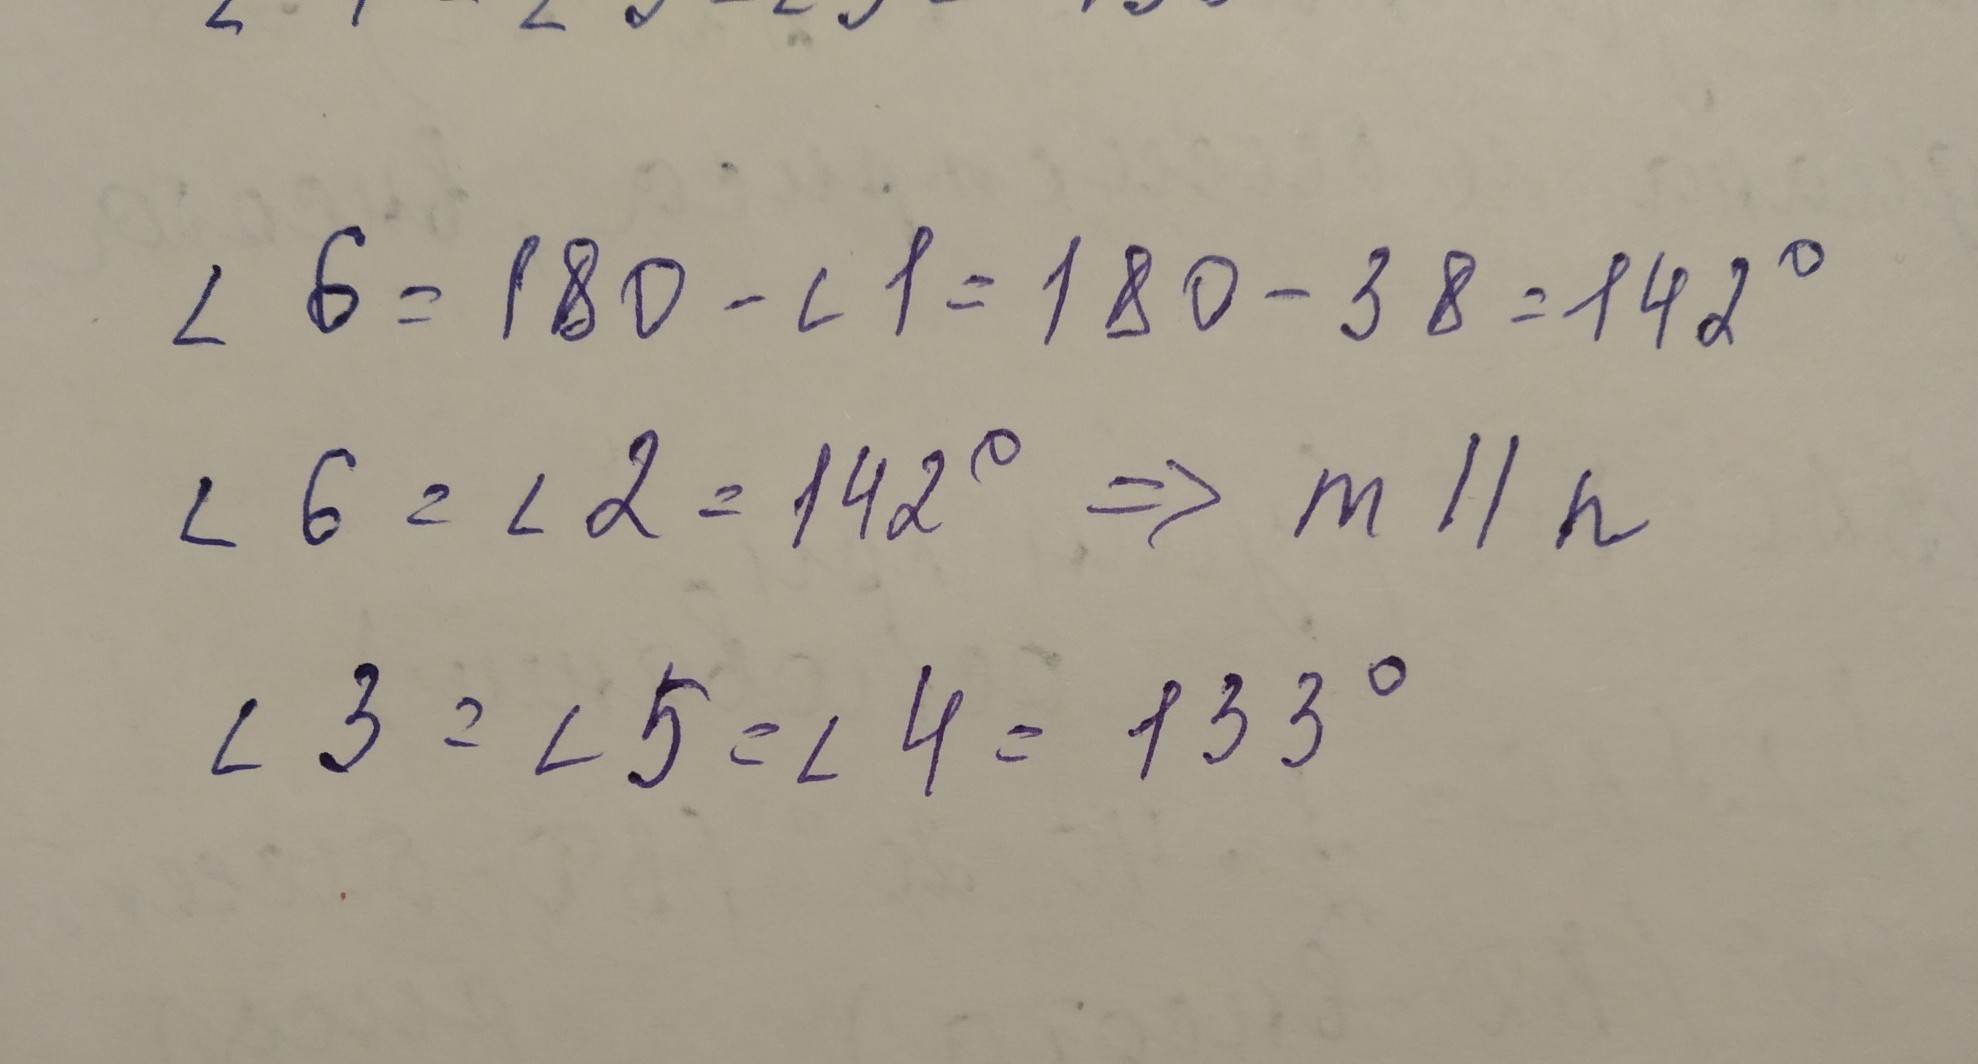 ∠ 6 = 180 - ∠ 1 = 180 - 38 = 142°
∠ 6 = ∠ 2 = 142° => m || n
∠ 3 = ∠ 5 = ∠ 4 = 133°